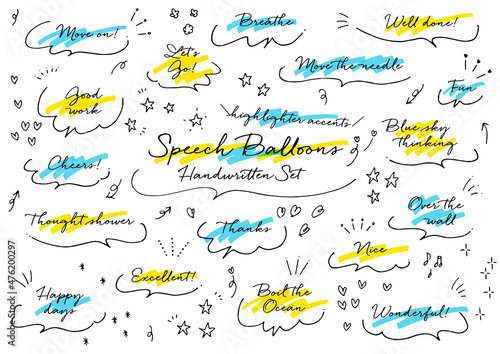 Move on!
Breathe
Well done!
Let's
Go!
Move the needle
Good
work
Fun
highlighter accents
Speech Balloons
Handwritten Set
Blue sky
thinking
Cheers!
Thought shower
Thanks
Over the
wall
Nice
Excellent!
Happy
days
Boil the
Ocean
Wonderful!
Adobe Stock | #476200297